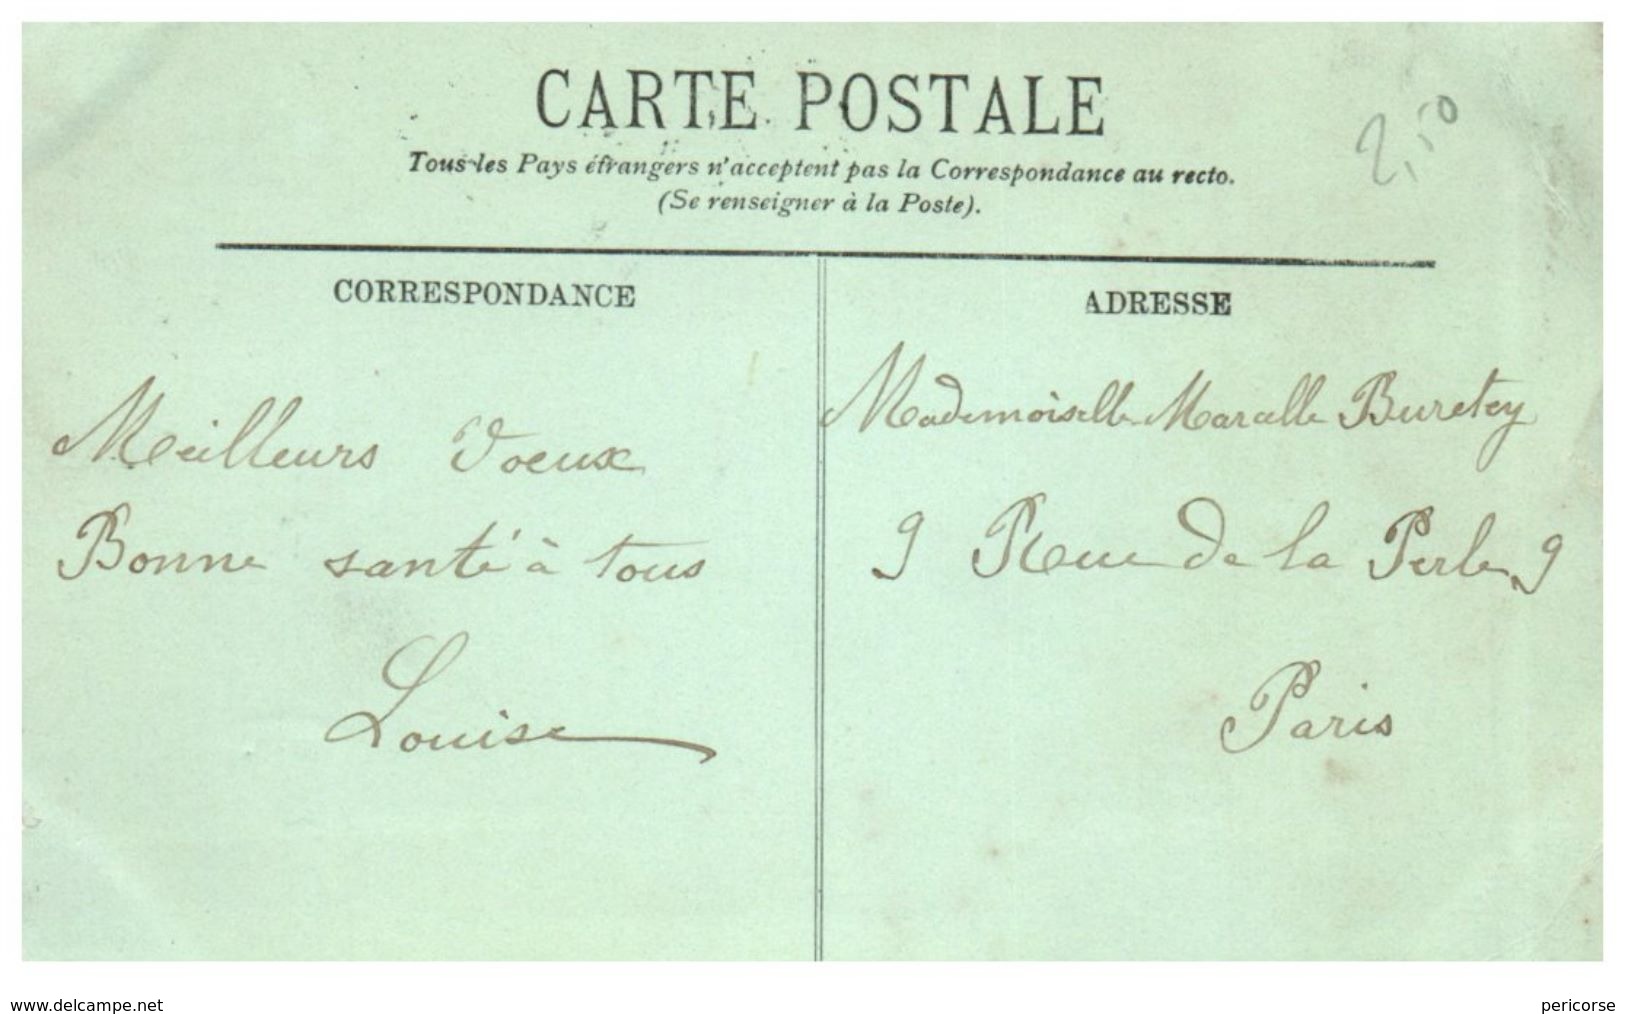 CARTE POSTALE
2,50
Tous les Pays étrangers n'acceptent pas la Correspondance au recto.
(Se renseigner à la Poste).
CORRESPONDANCE
Meilleurs voeux
Bonne santé à tous
Louise
ADRESSE
Mademoiselle Marcelle Buretey
9 Rue de la Perle 9
Paris
www.delcampe.net
pericorse